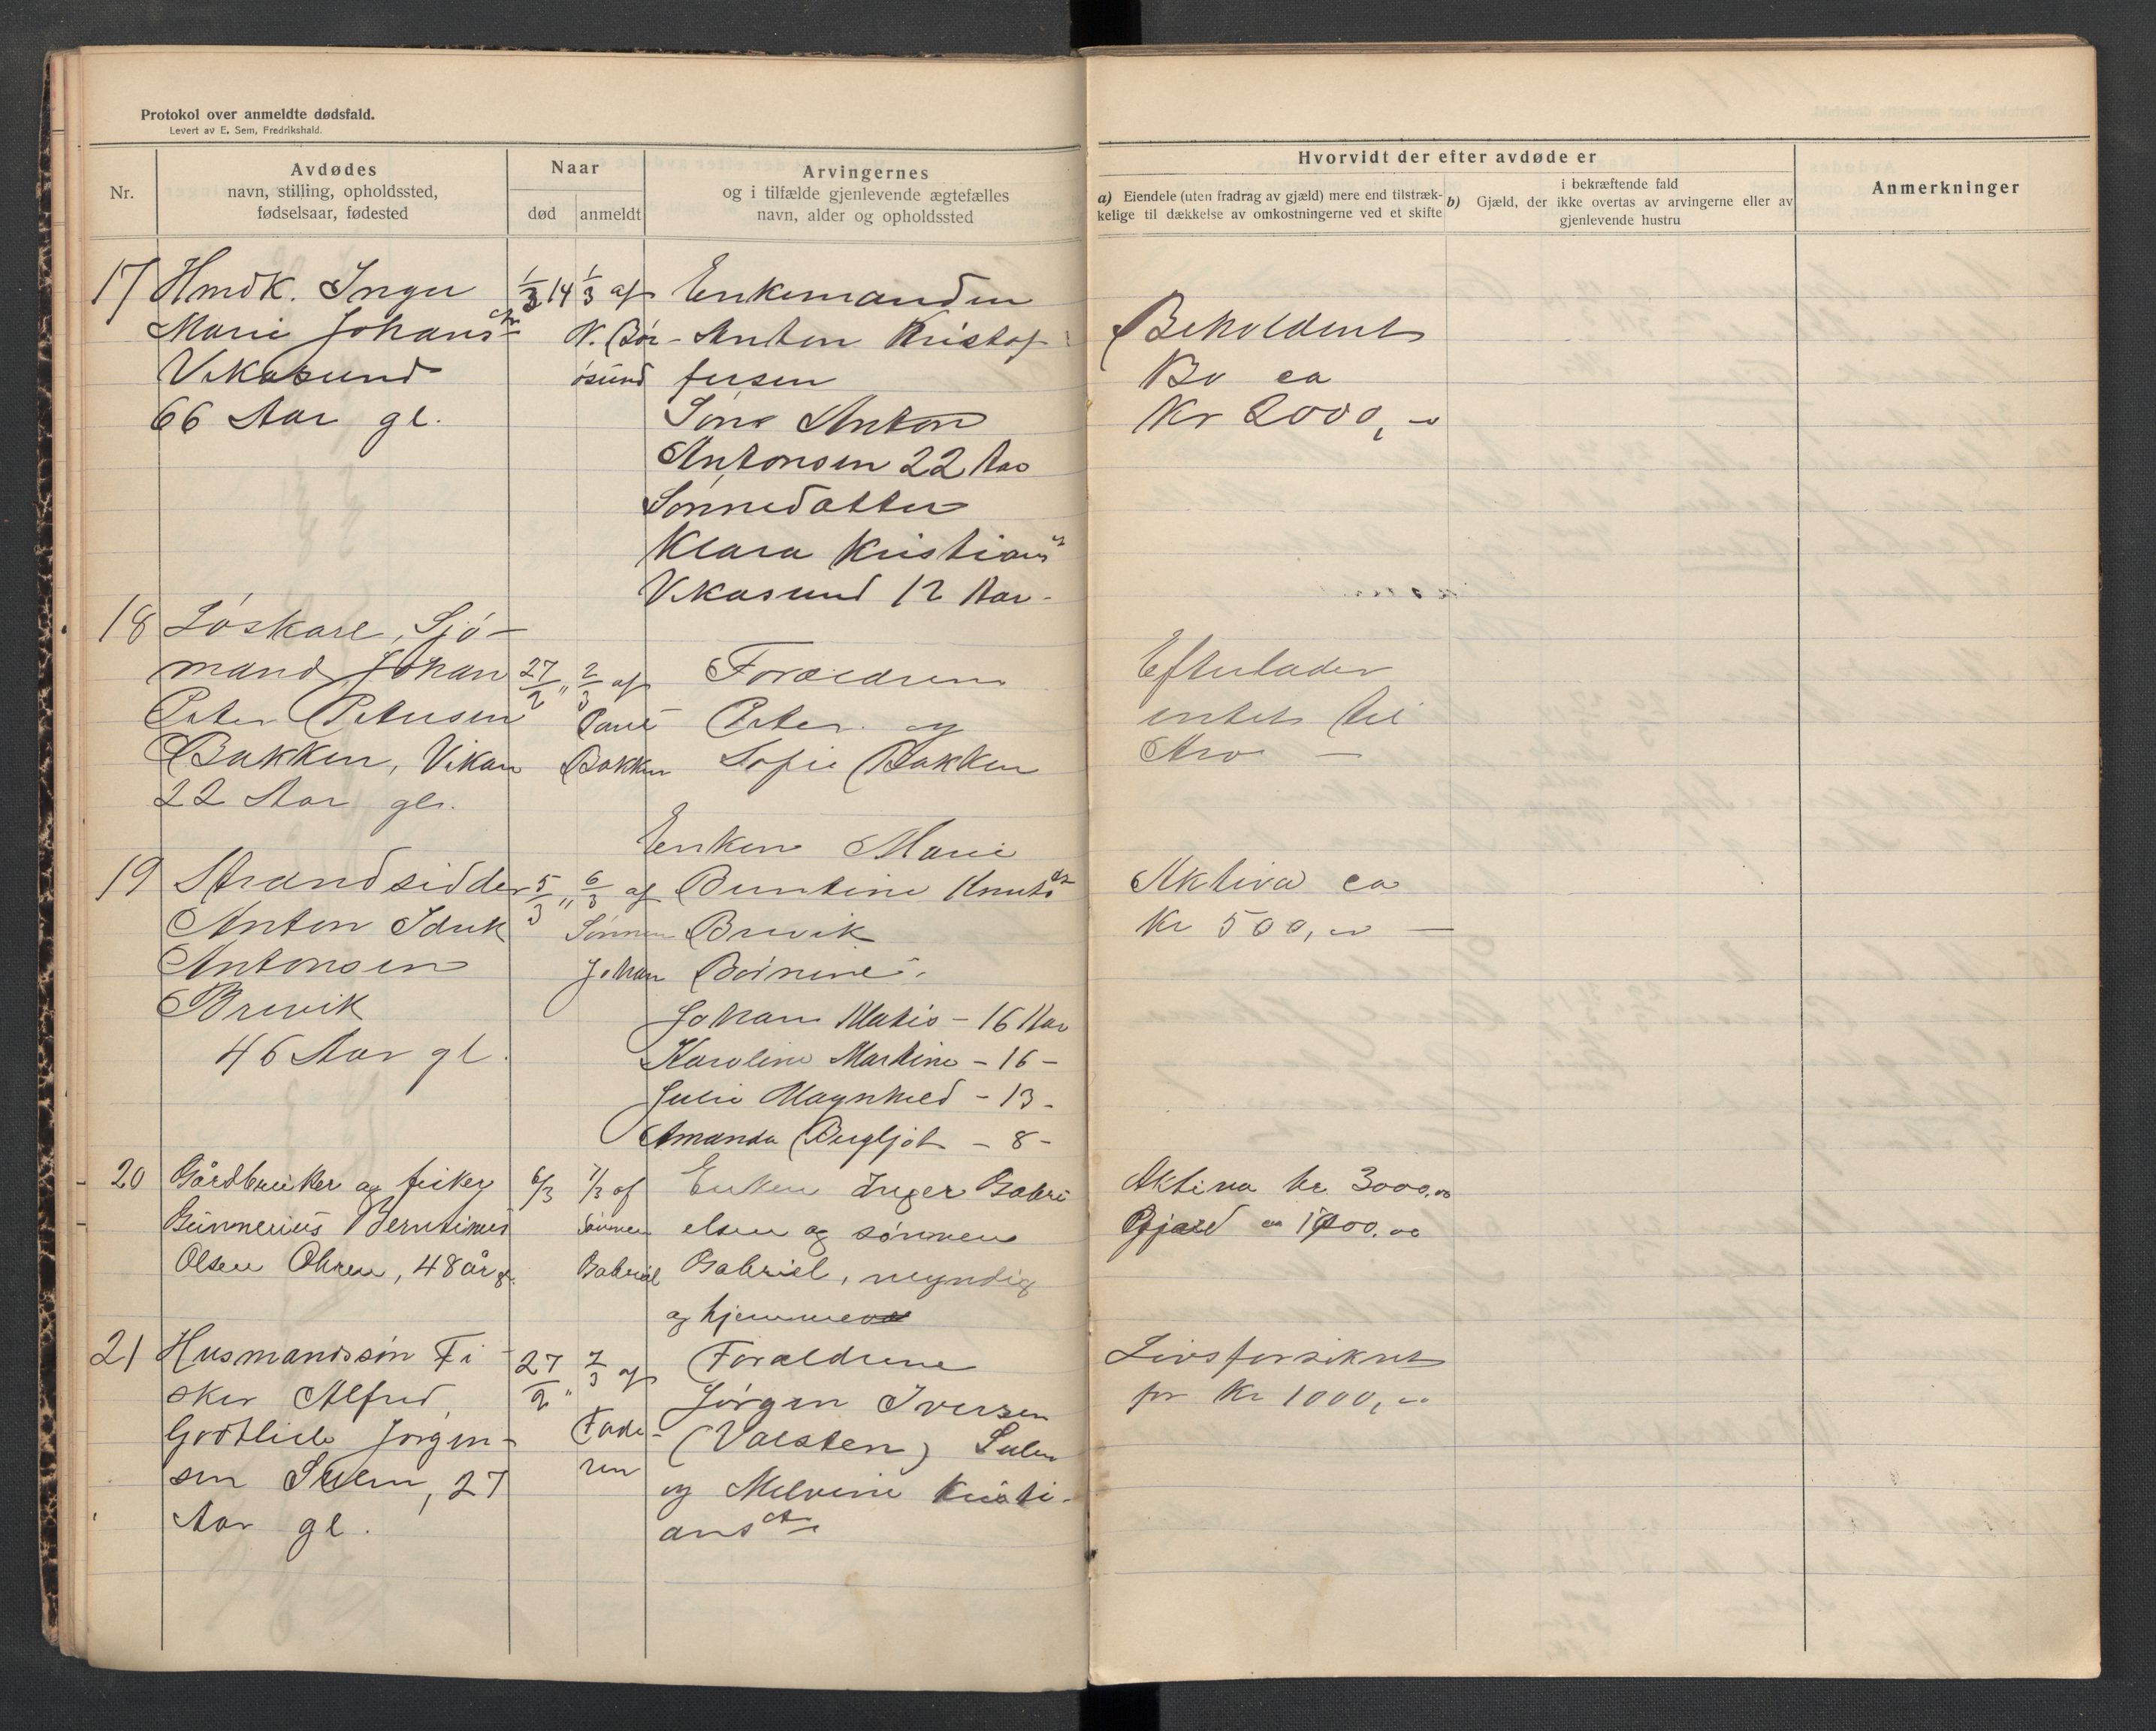 Protokol over anmeldte dødsfald.
Levert av E. Sem, Fredrikshald.
Nr.
Avdødes
navn, stilling, opholdssted,
fødselsaar, fødested
Naar
død
anmeldt
Arvingernes
og i tilfælde gjenlevende ægtefælles
navn, alder og opholdssted
Hvorvidt der efter avdøde er
a) Eiendele (uten fradrag av gjæld) mere end tilstræk-
kelige til dækkelse av omkostningerne ved et skifte
i bekræftende fald
b) Gjæld, der ikke overtas av arvingerne eller av
gjenlevende hustru
Anmerkninger
17 Hmdk. Inger
Marie Johansdtr
Vikasund
66 Aar gl.
1/3 14
1/3 af
N. Bör-
ösund
Enkemanden
Anton Kristof
fersen
Sön Anton
Antonsen 22 Aar
Sönnedatter
Klara Kristians
Vikasund 12 Aar-
Beholdent
Bo ca
Kr 2000,-
18 Löskarl, Sjö-
mand Johan
Peter Petersen
Bakken, Vikan
22 Aar gl.
27/2 "
2/3 af
Bakken
Forældrene
Peter og
Sofie Bakken
Efterlader
intet til
Arv -
19 Strandsidder
Anton Iduk
Antonsen
Brevik
46 Aar gl.
5/3 "
6/3 af
Sönnen
Johan
Enken Marie
Berntine Knutsdt
Brevik
Börnene:
Johan Matis - 16 Aar
Karoline Martine - 16 -
Julie Magnhild - 13 -
Amanda Bergljot - 8 -
Aktiva ca
Kr 500,- -
20 Gårdbruker og fisker
Gunnerius Berntinus
Olsen Ohren, 48 år gl.
6/3
7/3 af
sönnen
Gabriel
Enken Inger Gabri
elsen og sönnen
Gabriel, myndig
og hjemme
Aktiva kr 3000.00
Gjæld ca 1000.00
21 Husmandssön Fi
sker Alfred
Godtlieb Jörgen-
sen Sulen, 27
Aar gl.
27/2 "
7/3 af
Fade-
ren
Forældrene
Jörgen Iversen
(Valsten) Sulen
og Melvine Kristi-
ansdtr
Livsforsikret
for Kr 1000,-